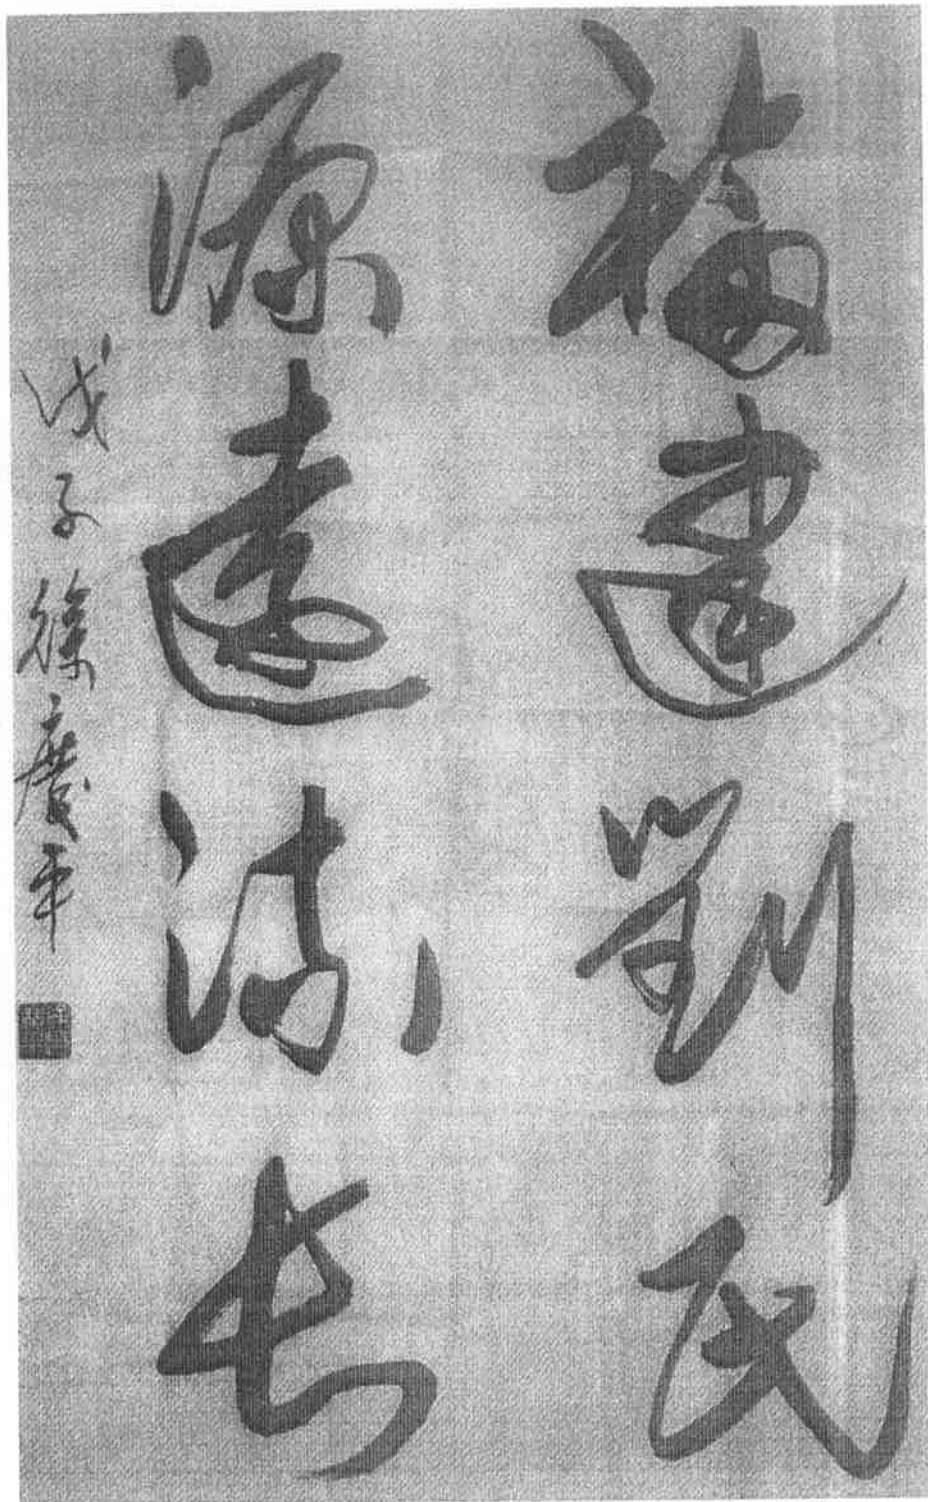 福建劉氏
源遠流長
戊子徐慶平